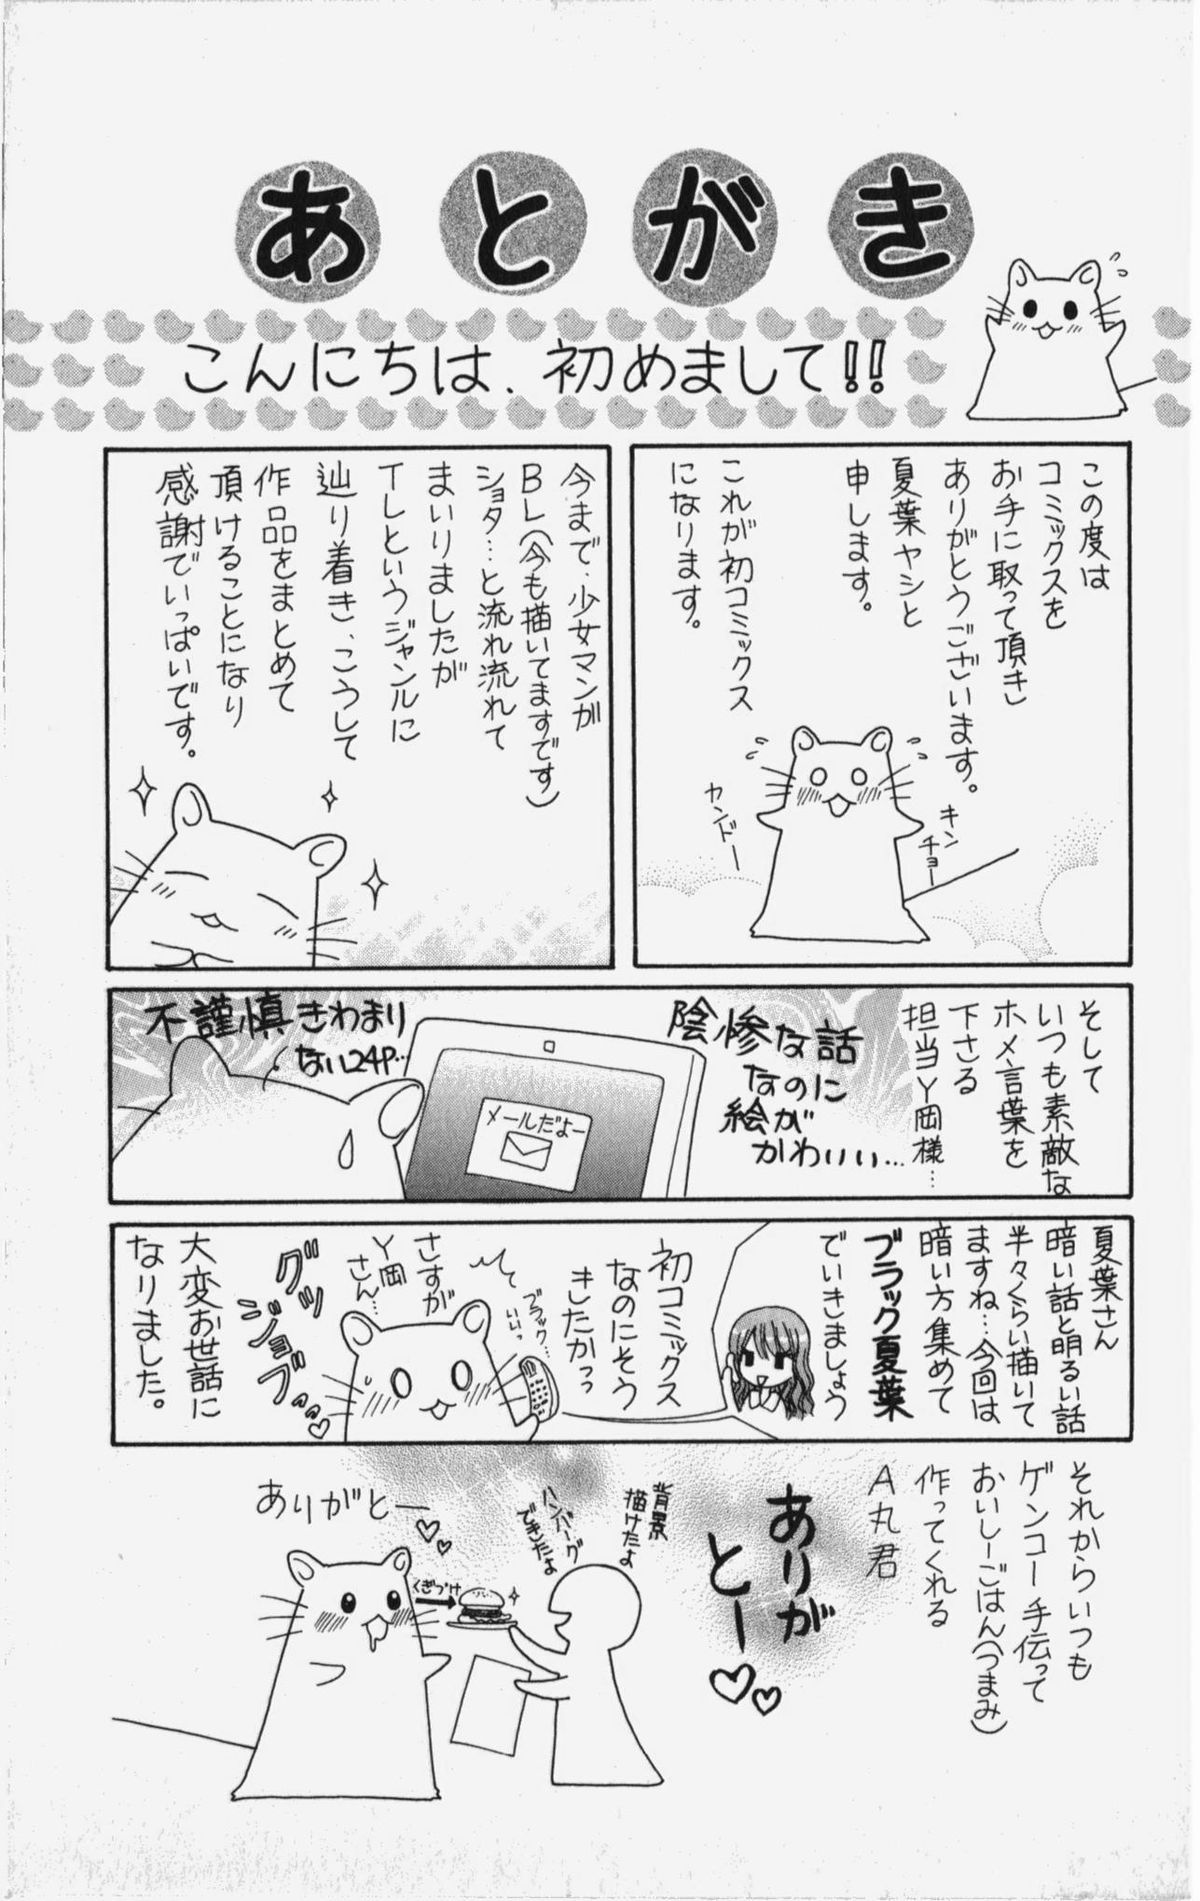 あとがき
こんにちは、初めまして!!
この度は
コミックスを
お手に取って頂き
ありがとうございます。
夏葉ヤシと
申します。
これが初コミックス
になります。
キンチョー
カンドー
今まで、少女マンガ
BL(今も描いてますです)
ショタ…と流れ流れて
まいりましたが
TLというジャンルに
辿り着き、こうして
作品をまとめて
頂けることになり
感謝でいっぱいです。
そして
いつも素敵な
ホメ言葉を
下さる
担当Y岡様…
陰惨な話
なのに
絵が
かわいい…
メールだよー
不謹慎きわまり
ない24P…
夏葉さん
暗い話と明るい話
半々くらい描いて
ますね…今回は
暗い方集めて
ブラック夏葉
でいきましょう
初コミックス
なのにそう
きたかっっ
ブラック…
いいっ
さすが
Y岡
さん…
グッ
ジョブ
大変お世話に
なりました。
それからいつも
ゲンコー手伝って
おいしーごはん(つまみ)
作ってくれる
A丸君
ありが
とー
背景
描けたよ
ハンバーグ
できたよ
くぎづけ
ありがとー